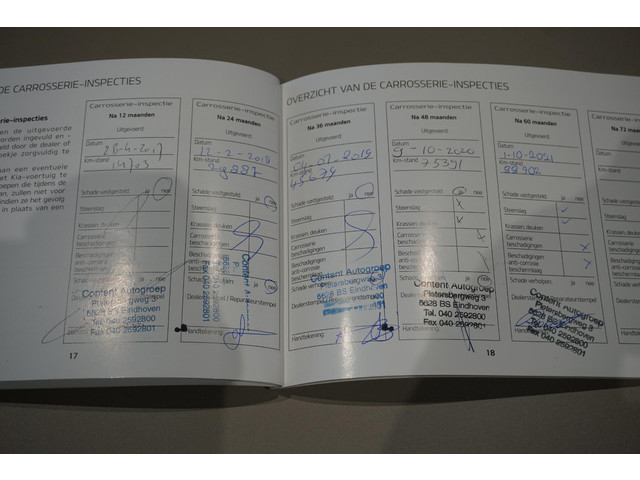 DE CARROSSERIE-INSPECTIES
sserie-inspecties
en de uitgevoerde
orden ingevuld en
eld door de dealer of
oekje zorgvuldig
an een eventuele
et Kia-voertuig te
epen die tijdens de
an, zullen niet voor
inden ze het gevolg
in plaats van een
Carrosserie-inspectie
Na 12 maanden
Uitgevoerd:
Datum
Km-stand
Schade vastgesteld: ja nee
Steenslag
Krassen, deuken
Carrosserie
beschadigingen
Beschadiging
anti-corrosie
beschermlaag
Content Autogroep
Pietersbergweg 3
5628 BS Eindhoven
Tel. 040 2592800
Fax 040 2592801
17
Carrosserie-inspectie
Na 24 maanden
Uitgevoerd:
Datum
12-2-2018
Km-stand
Schade vastgesteld: ja nee
Steenslag
Krassen, deuken
Carrosserie
beschadigingen
Beschadiging
anti-corrosie
Handtekening
OVERZICHT VAN DE CARROSSERIE-INSPECTIES
Carrosserie-inspectie
Na 36 maanden
Uitgevoerd:
Datum
04-02-2019
Km-stand
45679
Schade vastgesteld: ja nee
Steenslag
Krassen, deuken
Carrosserie
beschadigingen
Beschadiging
anti-corrosie
beschermlaag
Schade verholpen:
Content Autogroep
Pietersbergweg 3
5628 BS Eindhoven
Handtekening
Carrosserie-inspectie
Na 48 maanden
Uitgevoerd:
Datum
9-10-2020
Km-stand
75391
Schade vastgesteld: ja nee
Steenslag
Krassen, deuken
Carrosserie
beschadigingen
Beschadiging
anti-corrosie
beschermlaag
Schade verholpen:
Content Autogroep
Pietersbergweg 3
5628 BS Eindhoven
Tel. 040 2592800
Fax 040 2592801
Handtekening
18
Carrosserie-inspectie
Na 60 maanden
Uitgevoerd:
Datum
1-10-2021
Km-stand
Schade vastgesteld: ja nee
Steenslag
Krassen, deuken
Carrosserie
beschadigingen
Beschadiging
anti-corrosie
beschermlaag
Schade verholpen: ja nee
Content Autogroep
Pietersbergweg 3
5628 BS Eindhoven
Tel. 040 2592800
Fax 040 2592801
Handtekening
Carrosserie
Na 72 maa
Uitgevoe
Datum
Km-stand
Schade vastgesteld
Steenslag
Krassen, deuken
Carrosserie
beschadigingen
Beschadiging
anti-corrosie
beschermlaag
Schade verholpen
Dealerstempel
Handtekening